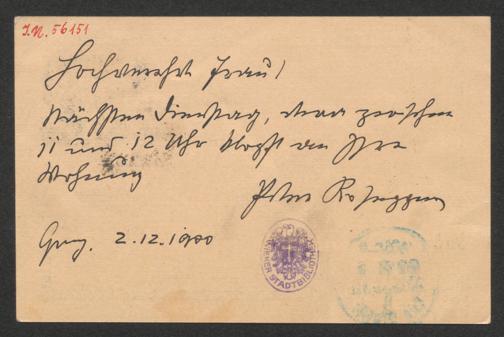 I.N. 56151
Hochverehrte Frau!
Nächsten Dienstag, etwa zwischen
11 und 12 Uhr klopft an Ihre
Wohnung
Peter Rosegger
Graz. 2.12.1900
WIENER STADTBIBLIOTHEK